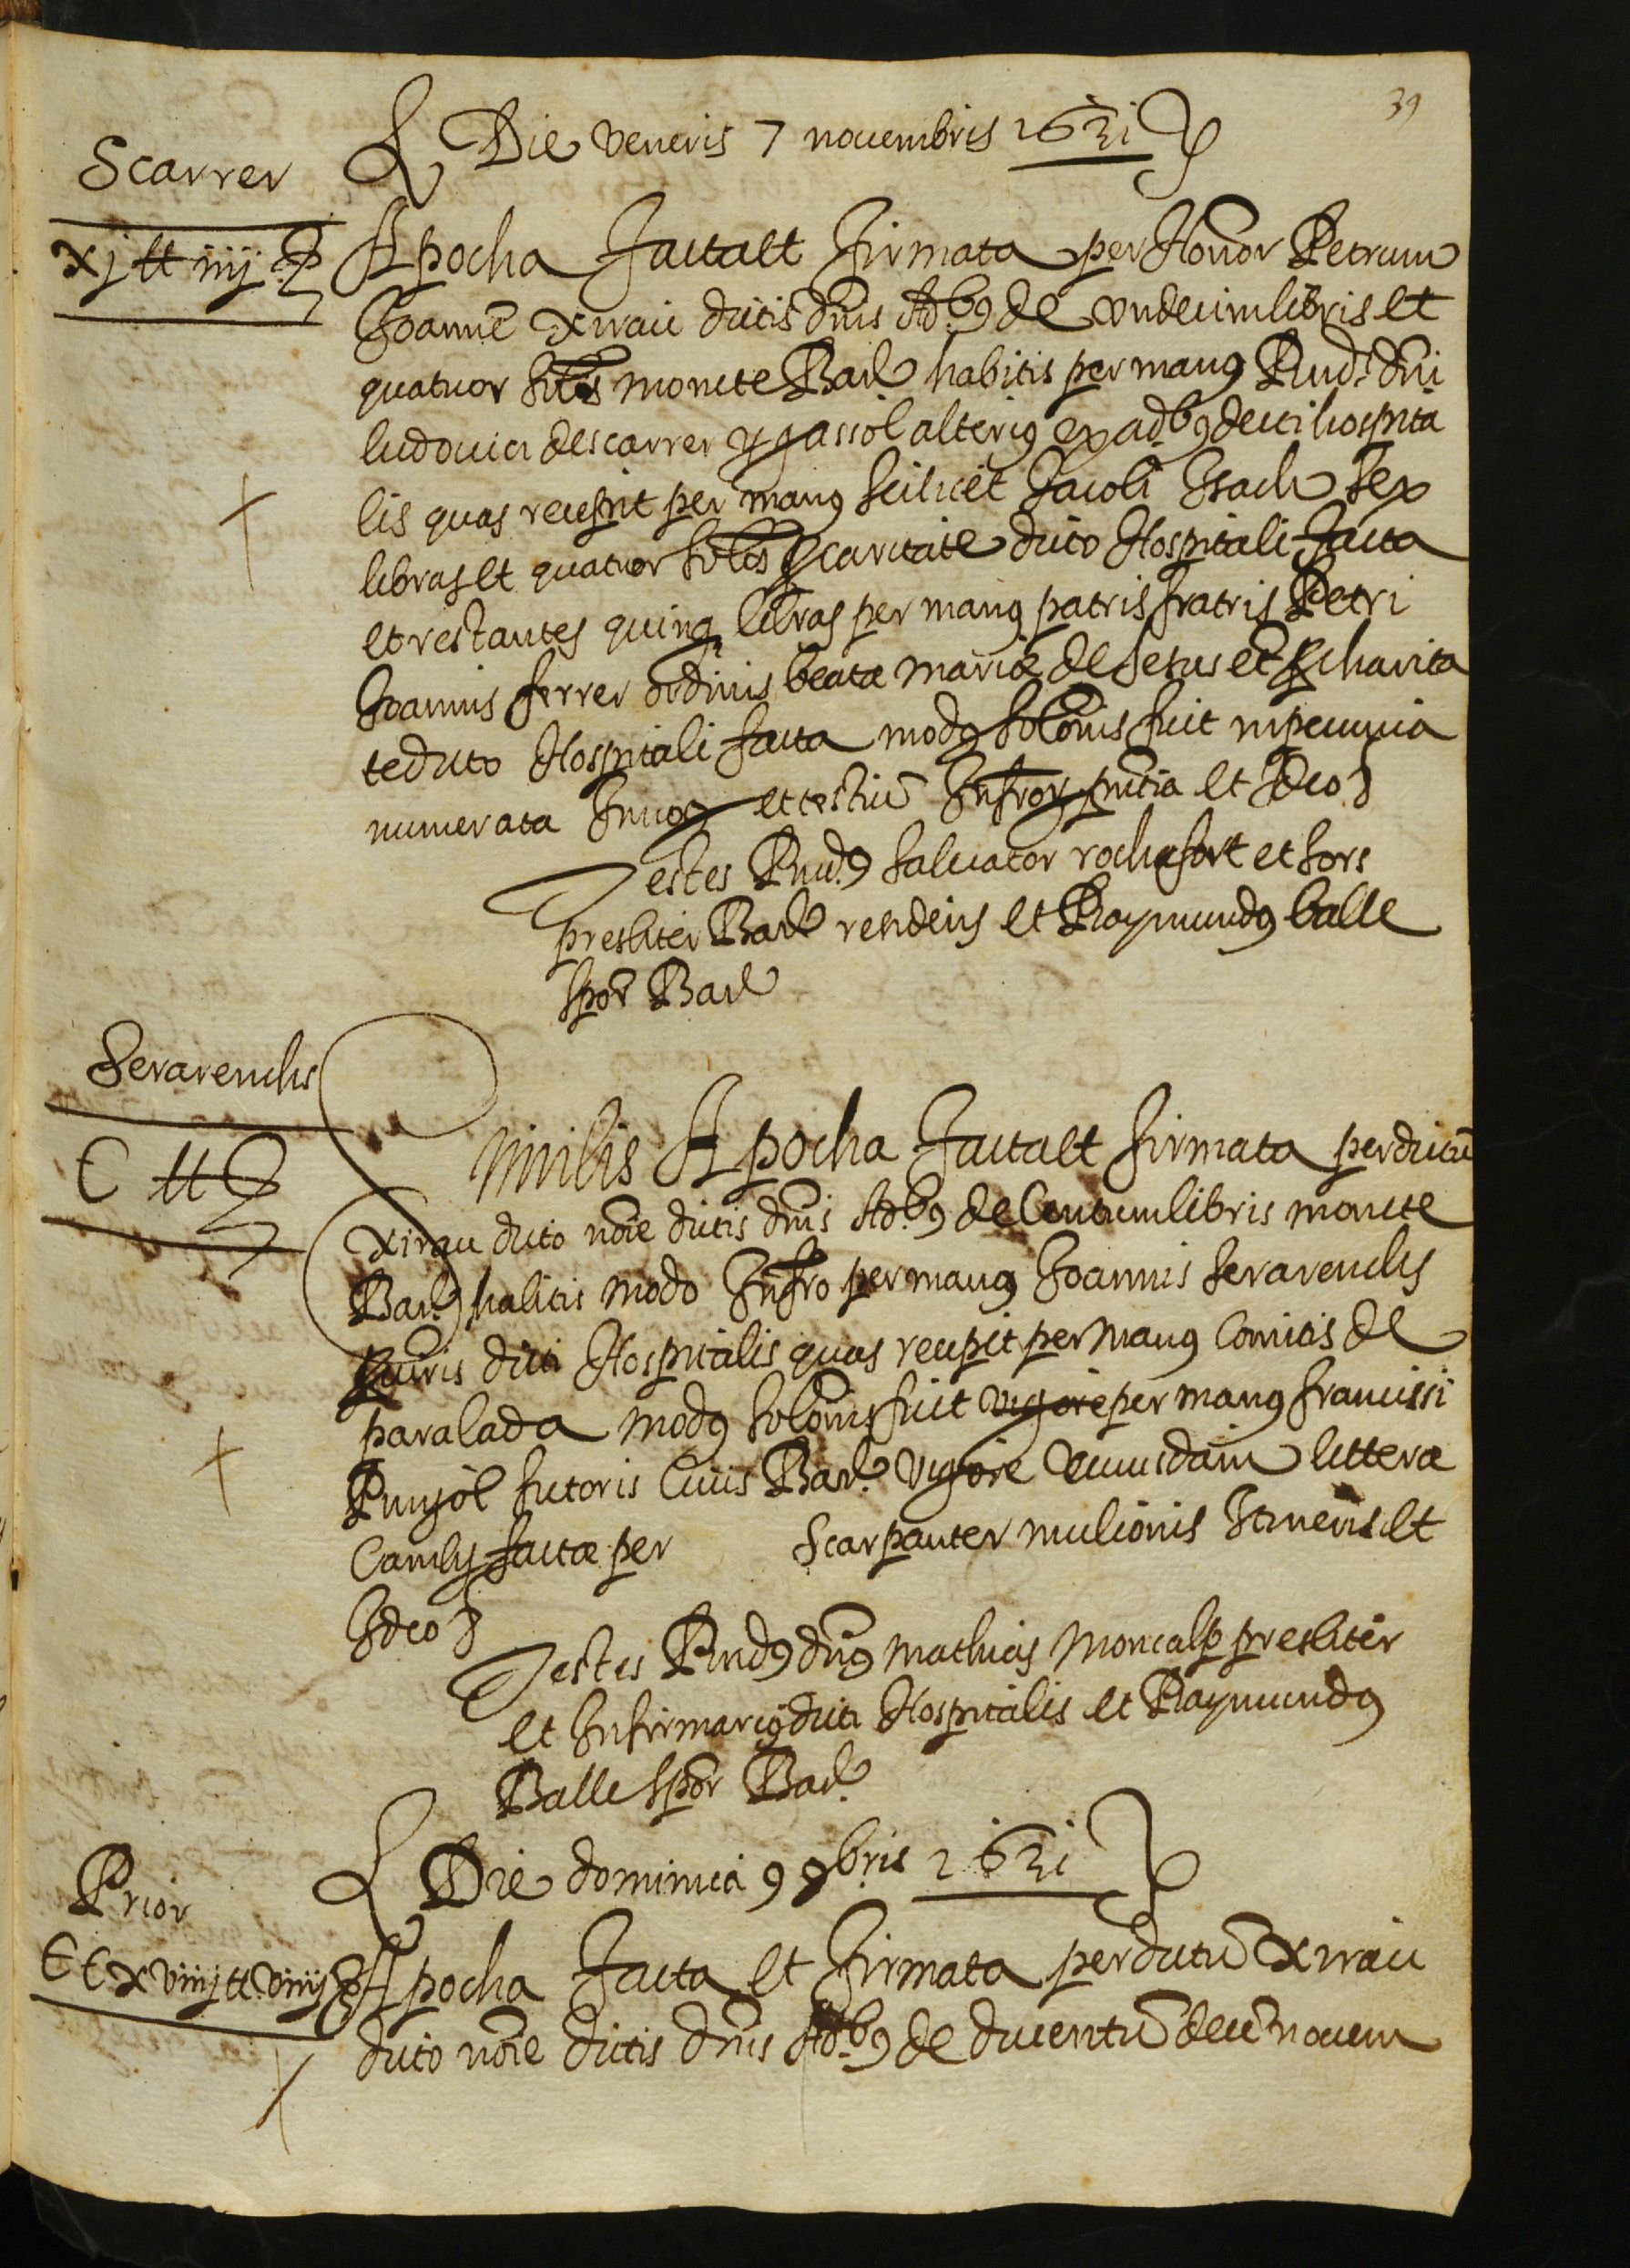 39
Die veneris 7 novembris 1631
Scarrer
xj ll iiij ß
Apocha facta et firmata per Honor Petrum
Joannẽ Xirau dictis dñis Adb9 de undecim libris et
quatuor solis monete Barñ habitis per man9 Rnd. dñi
ludovici descarrer y gassol alteri9 ex adb9 decti hospita
lis quas recepit per man9 scilicet Jacobi Isach sex
libras et quatuor solos p caritate dicto Hospitali facta
et restantes quinq libras per man9 patris fratris Petri
Joannis ferrer ordinis beatæ mariæ de Jesus et p charita
te dicto Hospitali facta mod9 solonis fuit in pecunia
numerata et testiũ Infror pñtia et Ideo
Testes Rnd9 salvator rochafort et sors
presbiter Barñ residens et Raymund9 balle
spor Barñ
Serarenchs
C ll
Similis Apocha facta et firmata per dictũ
Xirau dicto noĩe dictis dñis Adb9 de Centum libris monete
Barñ habitis modo Infro per man9 Joannis serarenchs
dicti Hospitalis quas recepit per man9 Comitis de
paralada mod9 solonis fuit vigore per man9 francissi
Punyol sutoris Civis Barñ vigore cuiusdam litteræ
Cambij factæ per Scarpanter mulionis Itineris et
Ideo
Testes Rnd9 dñ9 Mathias Moncalp presbiter
et Infirmari9 dicti Hospitalis et Raymund9
Balle spor Barñ
Die dominica 9 9bris 1631
Prior
CCxviiij ll viiij ß
Apocha facta et firmata per dictũ Xirau
dicto noĩe dictis dñis Adb9 de ducentũ decẽ novem